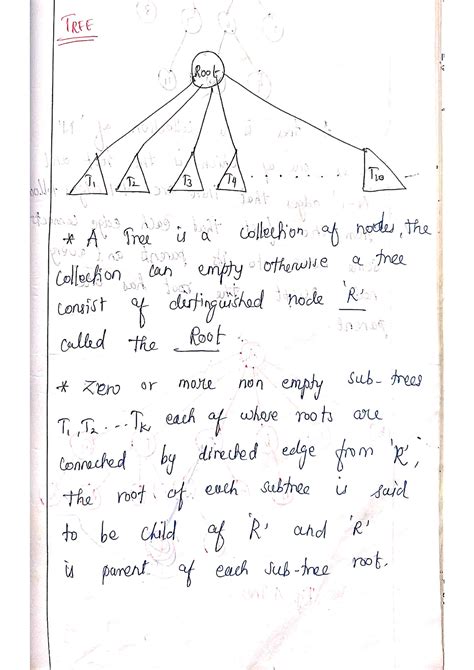 TREE
Root
T1 T2 T3 T4 . . . . . . T10
* A Tree is a collection of nodes, the
collection can empty otherwise a tree
consist of distinguished node 'R'
called the Root.
* Zero or more non empty sub-trees
T1, T2 ... Tk each of where roots are
connected by directed edge from 'R',
The root of each subtree is said
to be child of 'R' and 'R'
is parent of each sub-tree root.